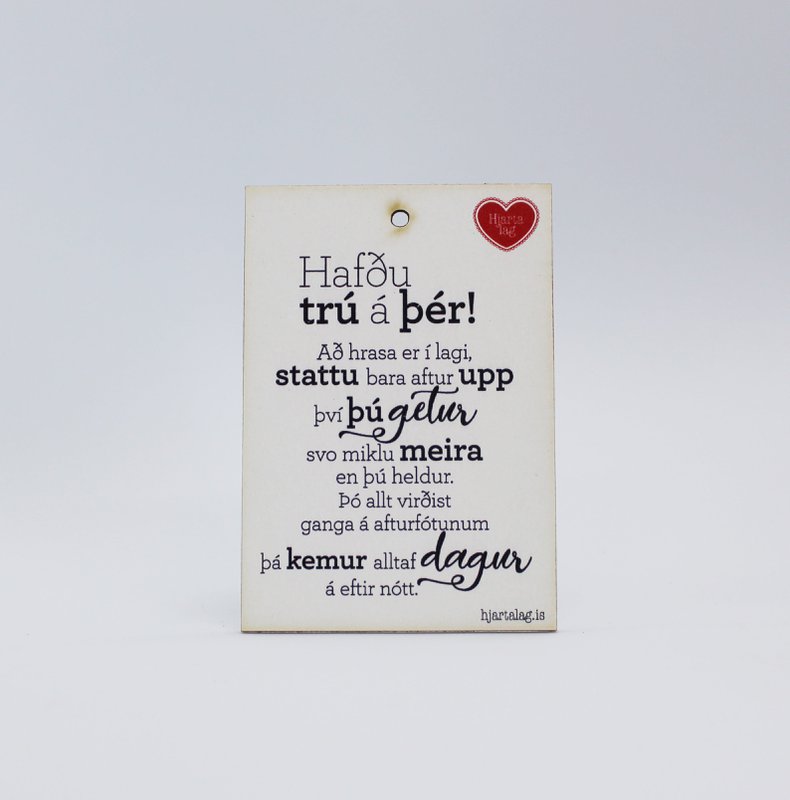 Hjarta
lag
Hafðu
trú á þér!
Að hrasa er í lagi,
stattu bara aftur upp
því þú getur
svo miklu meira
en þú heldur.
Þó allt virðist
ganga á afturfótunum
þá kemur alltaf dagur
á eftir nótt.
hjartalag.is